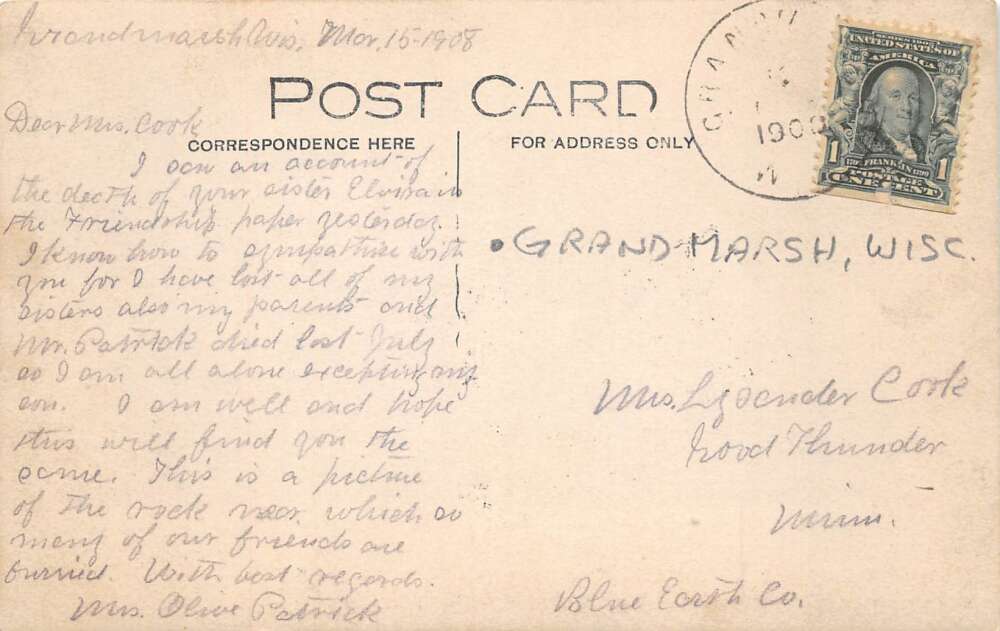 Grandmarsh Wis, Mar, 15-1908
POST CARD
Dear Mrs. Cook
CORRESPONDENCE HERE
FOR ADDRESS ONLY
I saw an account of
the death of your sister Elvira in
the Friendship paper yesterday.
I know how to sympathise with
you for I have lost all of my
sisters also my parents and
Mr. Patrick died last July
so I am all alone excepting my
son. I am well and hope
this will find you the
same. This is a picture
of the rock near which so
many of our friends are
burried. With best regards.
Mrs. Olive Patrick
GRAND
1908
SERIES 1902
UNITED STATES OF
AMERICA
1 FRANKLIN 1
POSTAGE
ONE CENT
GRAND MARSH, WISC.
Mrs. Lysander Cook
Good Thunder
Minn.
Blue Earth Co.